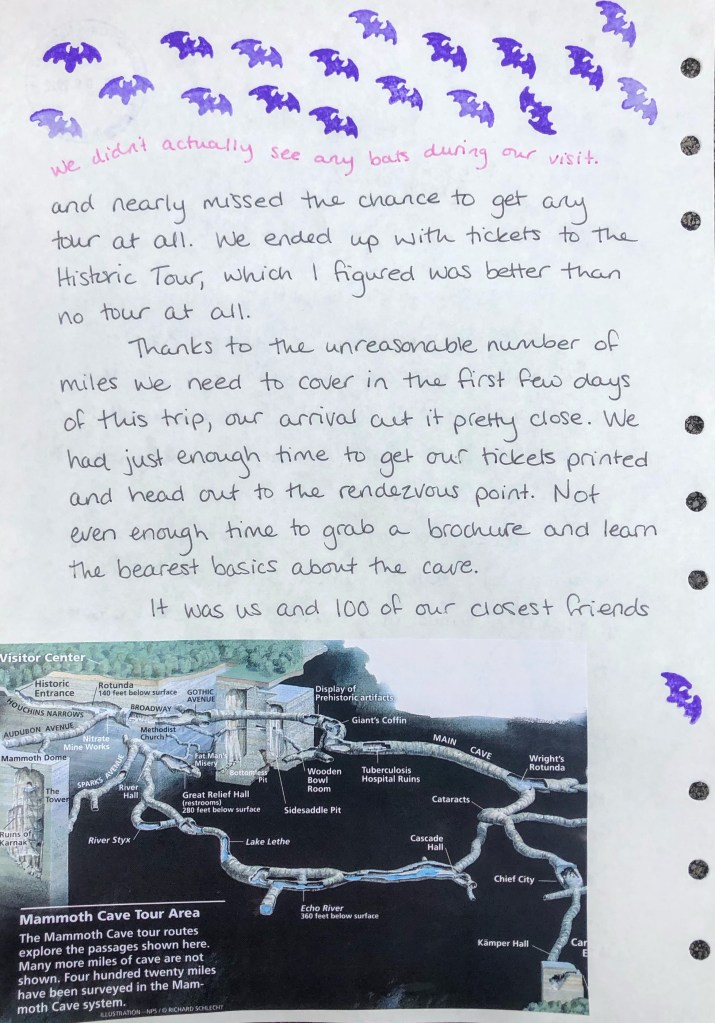 we didn't actually see any bats during our visit.
and nearly missed the chance to get any
tour at all. We ended up with tickets to the
Historic Tour, which I figured was better than
no tour at all.
Thanks to the unreasonable number of
miles we need to cover in the first few days
of this trip, our arrival cut it pretty close. We
had just enough time to get our tickets printed
and head out to the rendezvous point. Not
even enough time to grab a brochure and learn
the bearest basics about the cave.
It was us and 100 of our closest friends
Visitor Center
Historic
Entrance
Rotunda
140 feet below surface
GOTHIC
AVENUE
Display of
Prehistoric artifacts
HOUCHINS NARROWS
BROADWAY
Giant's Coffin
AUDUBON AVENUE
Nitrate
Mine Works
Methodist
Church
MAIN CAVE
Mammoth Dome
Fat Man's
Misery
Bottomless
Pit
Wooden
Bowl
Room
Tuberculosis
Hospital Ruins
Wright's
Rotunda
SPARKS AVENUE
The
Tower
River
Hall
Great Relief Hall
(restrooms)
280 feet below surface
Sidesaddle Pit
Cataracts
Ruins of
Karnak
River Styx
Lake Lethe
Cascade
Hall
Chief City
Echo River
360 feet below surface
Kämper Hall
Car
E
Mammoth Cave Tour Area
The Mammoth Cave tour routes
explore the passages shown here.
Many more miles of cave are not
shown. Four hundred twenty miles
have been surveyed in the Mam-
moth Cave system.
ILLUSTRATION—NPS / © RICHARD SCHLECHT